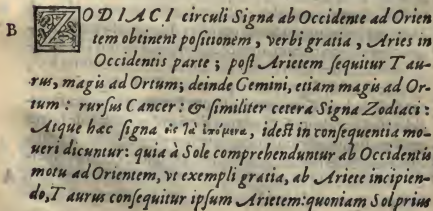 B ZODIACI circuli Signa ab Occidente ad Orien
tem obtinent positionem, verbi gratia, Aries in
Occidentis parte; post Arietem sequitur Tau-
rus, magis ad Ortum; deinde Gemini, etiam magis ad Or-
tum: rursus Cancer: & similiter cetera Signa Zodiaci:
Atque hæc signa εἰς τὰ ἑπόμενα, idest in consequentia mo-
ueri dicuntur: quia à Sole comprehenduntur ab Occidentis
motu ad Orientem, vt exempli gratia, ab Ariete incipien-
do, Taurus consequitur ipsum Arietem: quoniam Sol prius